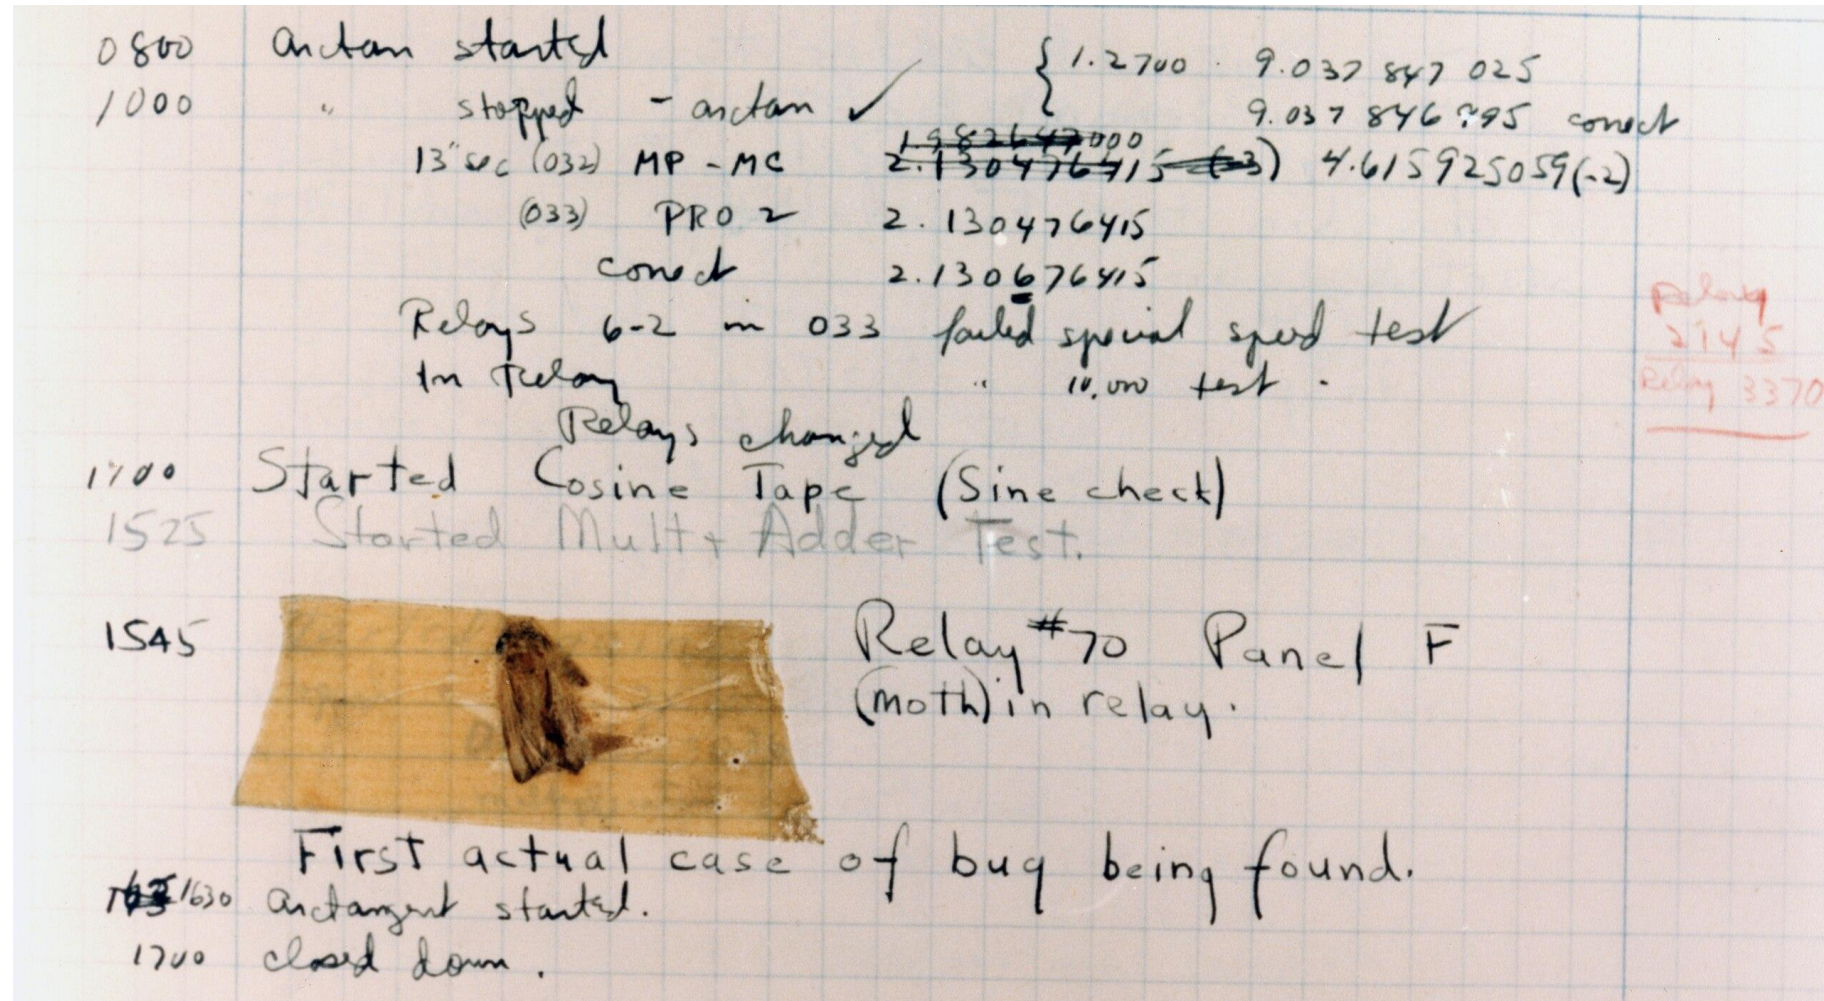 0800 arctan started { 1.2700 9.037 847 025
1000 " stopped - arctan ✓ 9.037 846 995 correct
1.982647000
13" sec (032) MP - MC 2.130476415 (-3) 4.615925059(-2)
(033) PRO 2 2.130476415
correct 2.130676415
Relays 6-2 in 033 failed special speed test
In Relay " 10,000 test .
Relays changed
Relay
2145
Relay 3370
1700 Started Cosine Tape (Sine check)
1525 Started Mult + Adder Test.
1545 Relay #70 Panel F
(moth) in relay.
First actual case of bug being found.
1630 arctangent started.
1700 closed down.